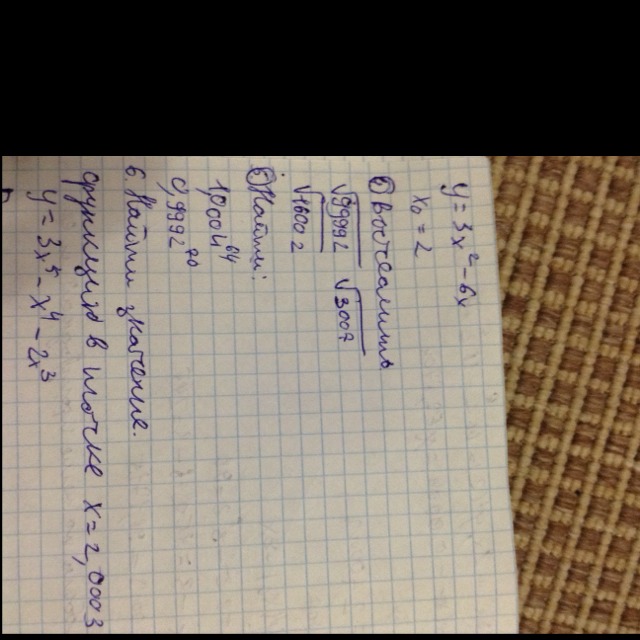 y = 3x² - 6x
x₀ = 2
Вычислить
√0,9992 √3007
√16002
Найти:
1,0004⁶⁴
0,9992²⁰
6. Найти значение
функция в точке x = 2,0003
y = 3x⁵ - x⁴ - 2x³